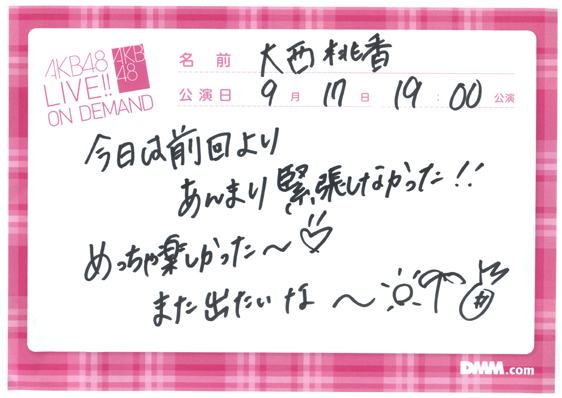 AKB48
LIVE!!
ON DEMAND
AKB
48
名前 大西桃香
公演日 9月17日 19:00公演
今日は前回より
あんまり緊張しなかった!!
めっちゃ楽しかった〜
また出たいな〜
DMM.com